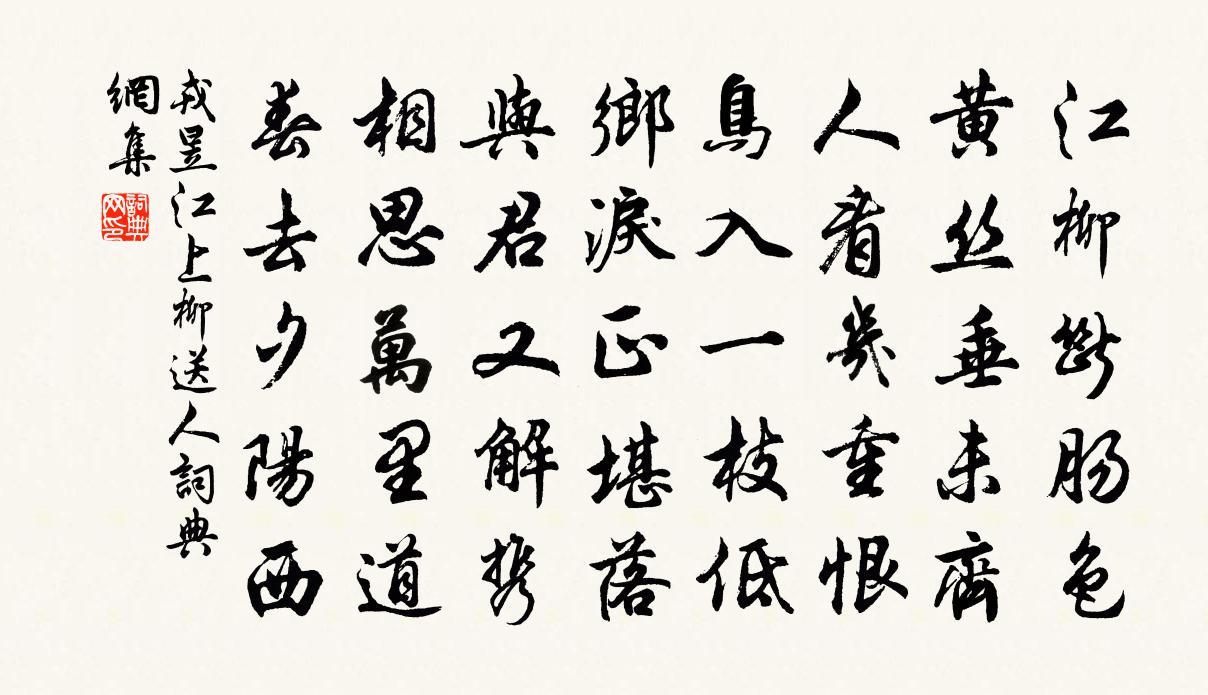 江柳斷腸色
黃丝垂未齊
人看幾重恨
鳥入一枝低
鄉淚正堪落
與君又解携
相思萬里道
春去夕陽西
戎昱江上柳送人詞典
網集
詞典
网印